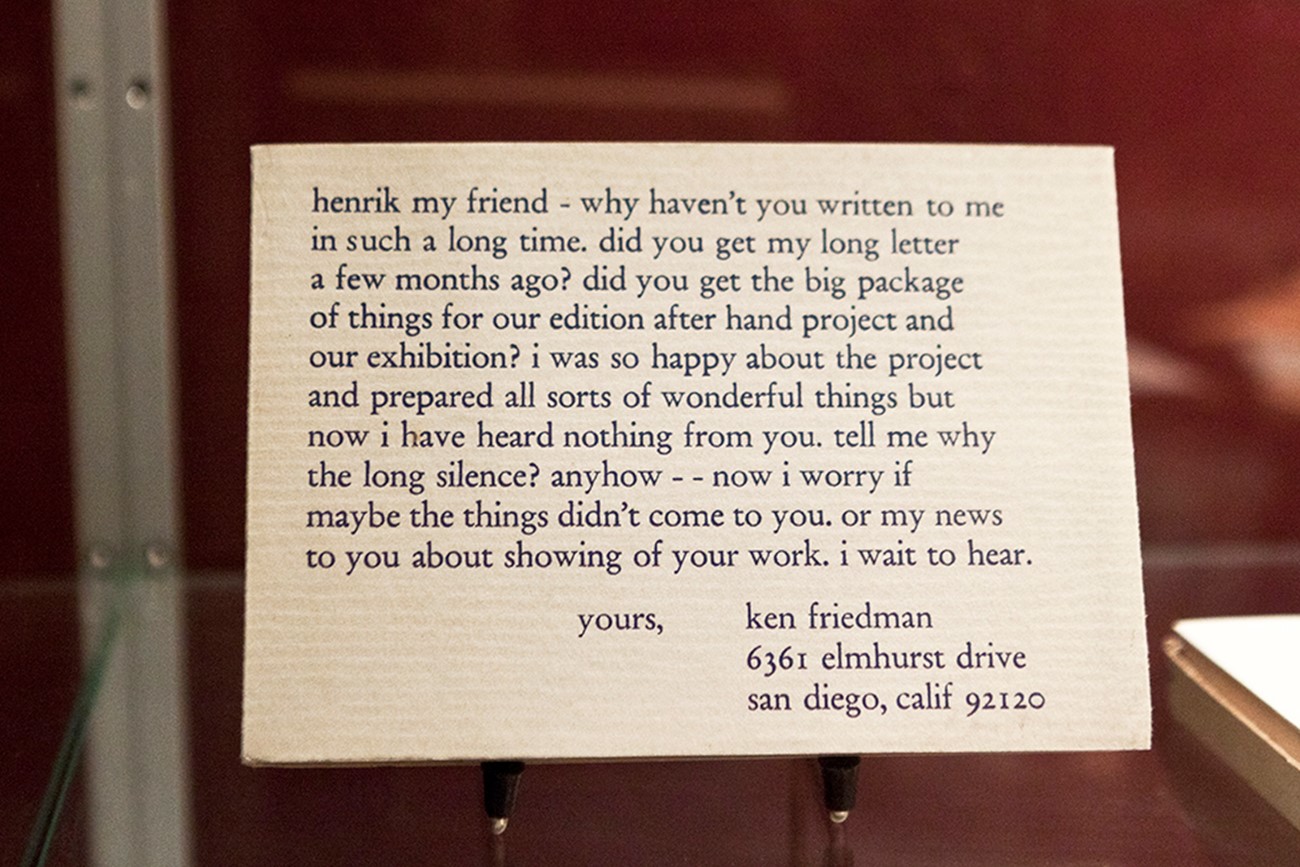 henrik my friend - why haven't you written to me
in such a long time. did you get my long letter
a few months ago? did you get the big package
of things for our edition after hand project and
our exhibition? i was so happy about the project
and prepared all sorts of wonderful things but
now i have heard nothing from you. tell me why
the long silence? anyhow - - now i worry if
maybe the things didn't come to you. or my news
to you about showing of your work. i wait to hear.
yours, ken friedman
6361 elmhurst drive
san diego, calif 92120